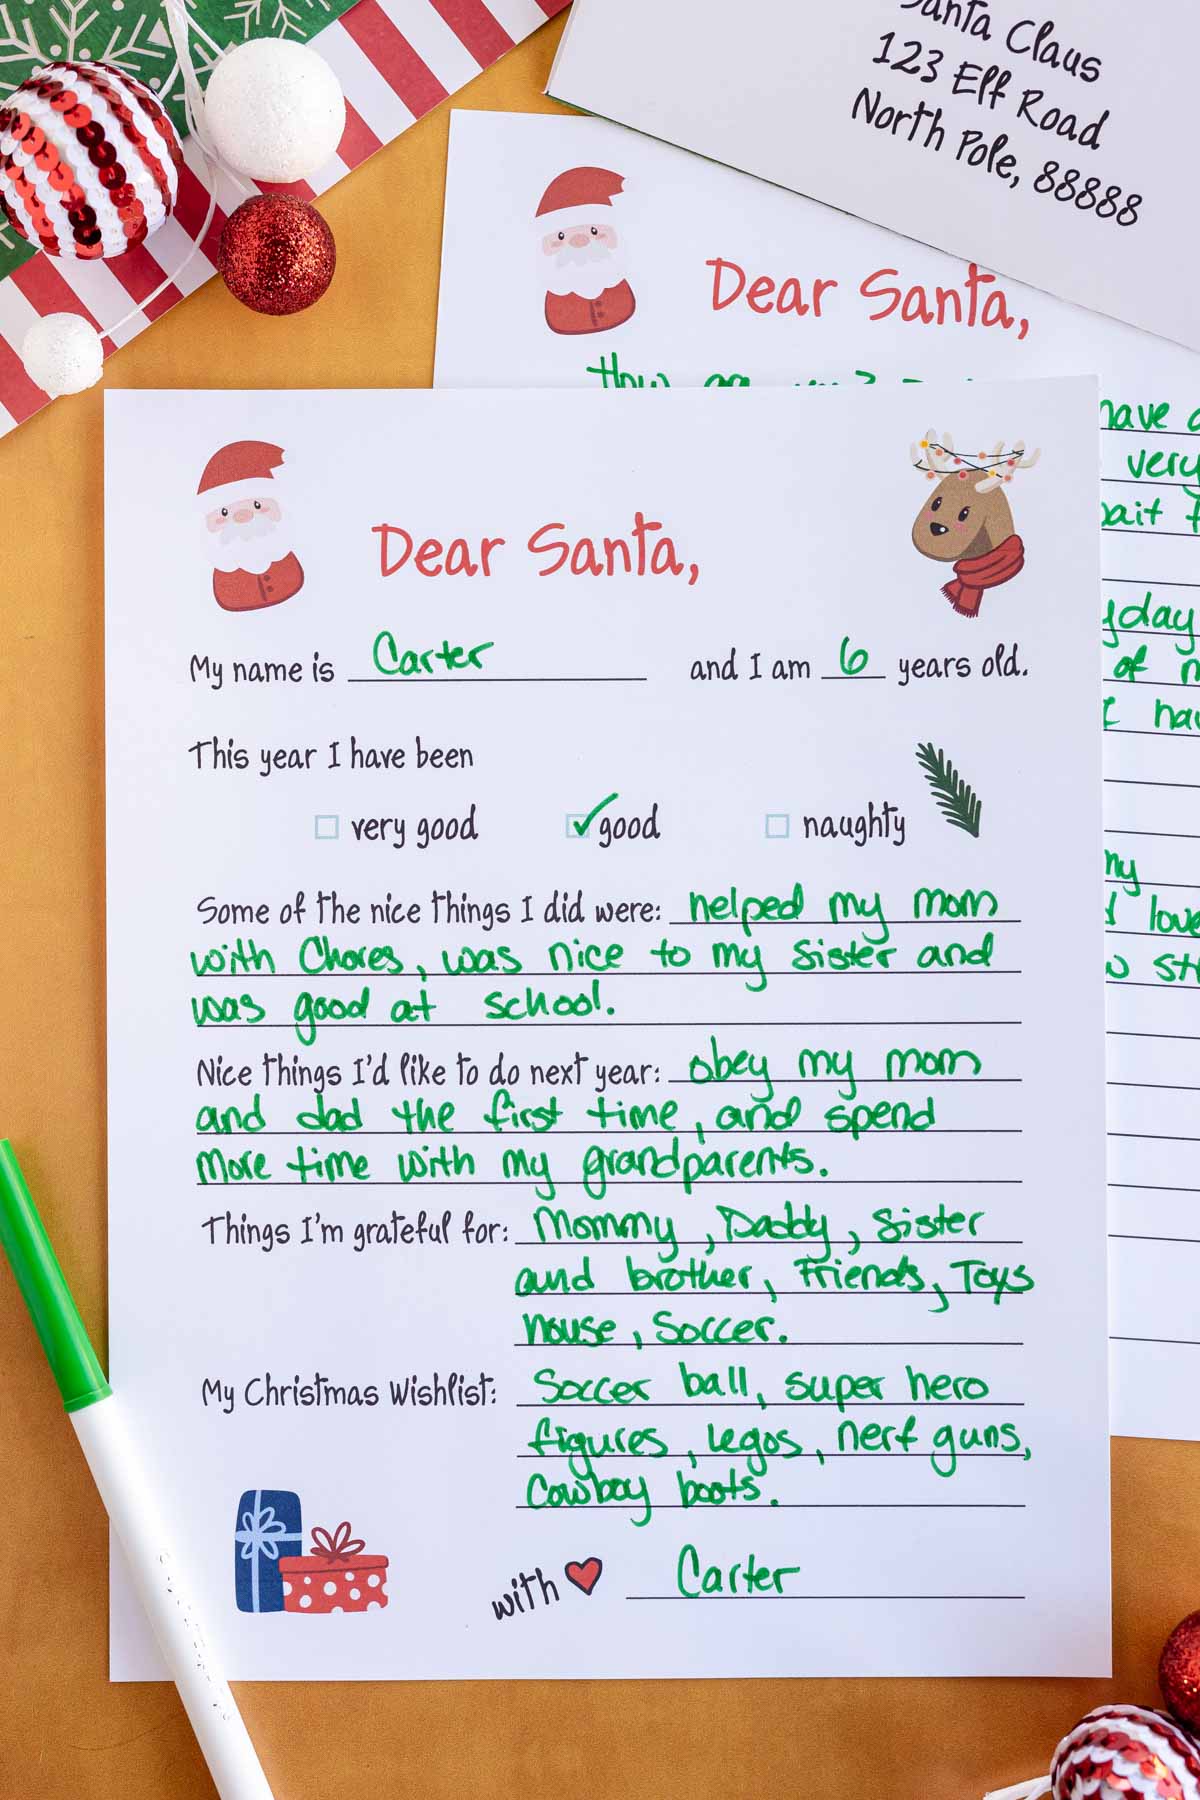 Santa Claus
123 Elf Road
North Pole, 88888
Dear Santa,
How
have
very
of
my
love
Dear Santa,
My name is Carter and I am 6 years old.
This year I have been
very good ✓ good naughty
Some of the nice things I did were: helped my mom
with Chores, was nice to my Sister and
was good at school.
Nice things I'd like to do next year: obey my mom
and dad the first time, and spend
More time with my grandparents.
Things I'm grateful for: Mommy, Daddy, Sister
and brother, Friends, Toys
house, Soccer.
My Christmas Wishlist: Soccer ball, super hero
figures, Legos, nerf guns,
Cowboy boots.
with ♥ Carter